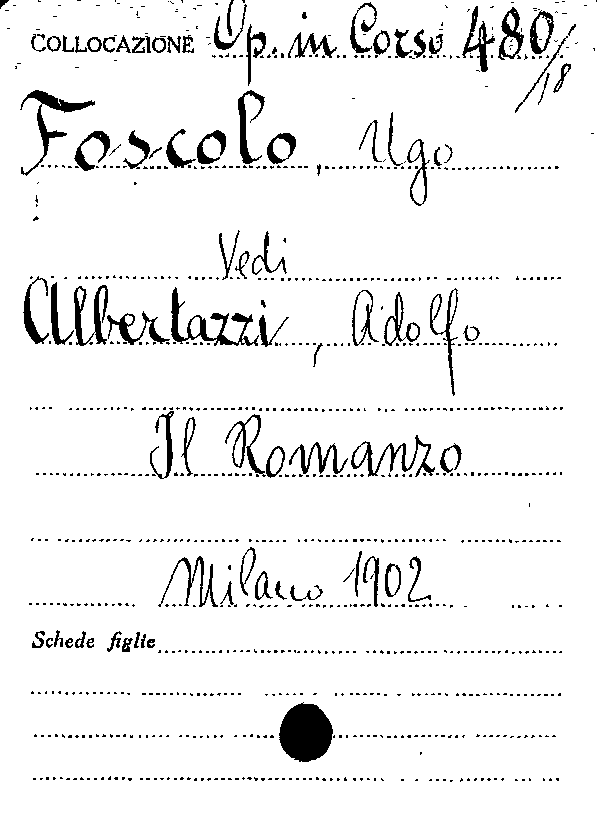 COLLOCAZIONE Op. in Corso 480/18
Foscolo, Ugo
Vedi
Albertazzi, Adolfo
Il Romanzo
Milano 1902
Schede figlie